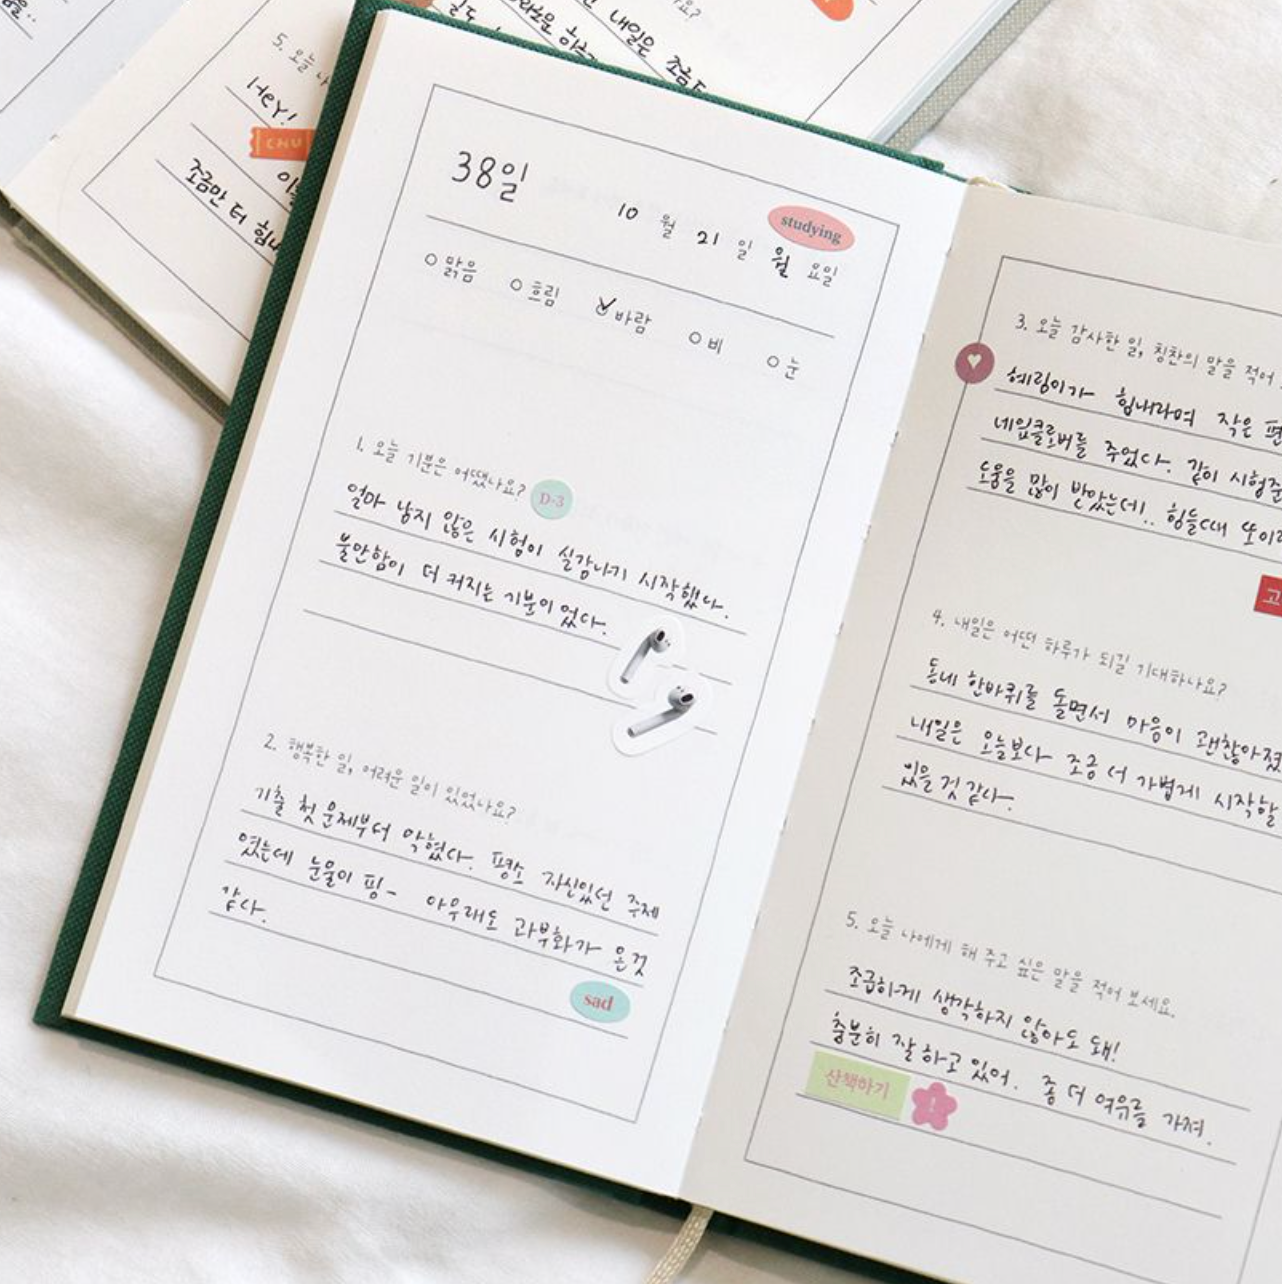 5. 오늘 나
HEY!
CHU
조금만 더 힘내
내일은 조금 더
38일
studying
10 월 21 일 월 요일
맑음 흐림 바람 비 눈
1. 오늘 기분은 어땠나요? D-3
얼마 남지 않은 시험이 실감나기 시작했다.
불안함이 더 커지는 기분이었다.
2. 행복한 일, 어려운 일이 있었나요?
기출 첫 문제부터 막혔다. 평소 자신있던 주제
였는데 눈물이 핑- 아무래도 과부화가 온것
같다.
sad
3. 오늘 감사한 일, 칭찬의 말을 적어
혜링이가 힘내라며 작은 편
네잎클로버를 주었다. 같이 시험준
도움을 많이 받았는데.. 힘들때 또 이
고
4. 내일은 어떤 하루가 되길 기대하나요?
동네 한바퀴를 돌면서 마음이 괜찮아졌
내일은 오늘보다 조금 더 가볍게 시작할
있을 것 같다.
5. 오늘 나에게 해 주고 싶은 말을 적어 보세요.
조급하게 생각하지 않아도 돼!
충분히 잘 하고 있어. 좀 더 여유를 가져.
산책하기 !